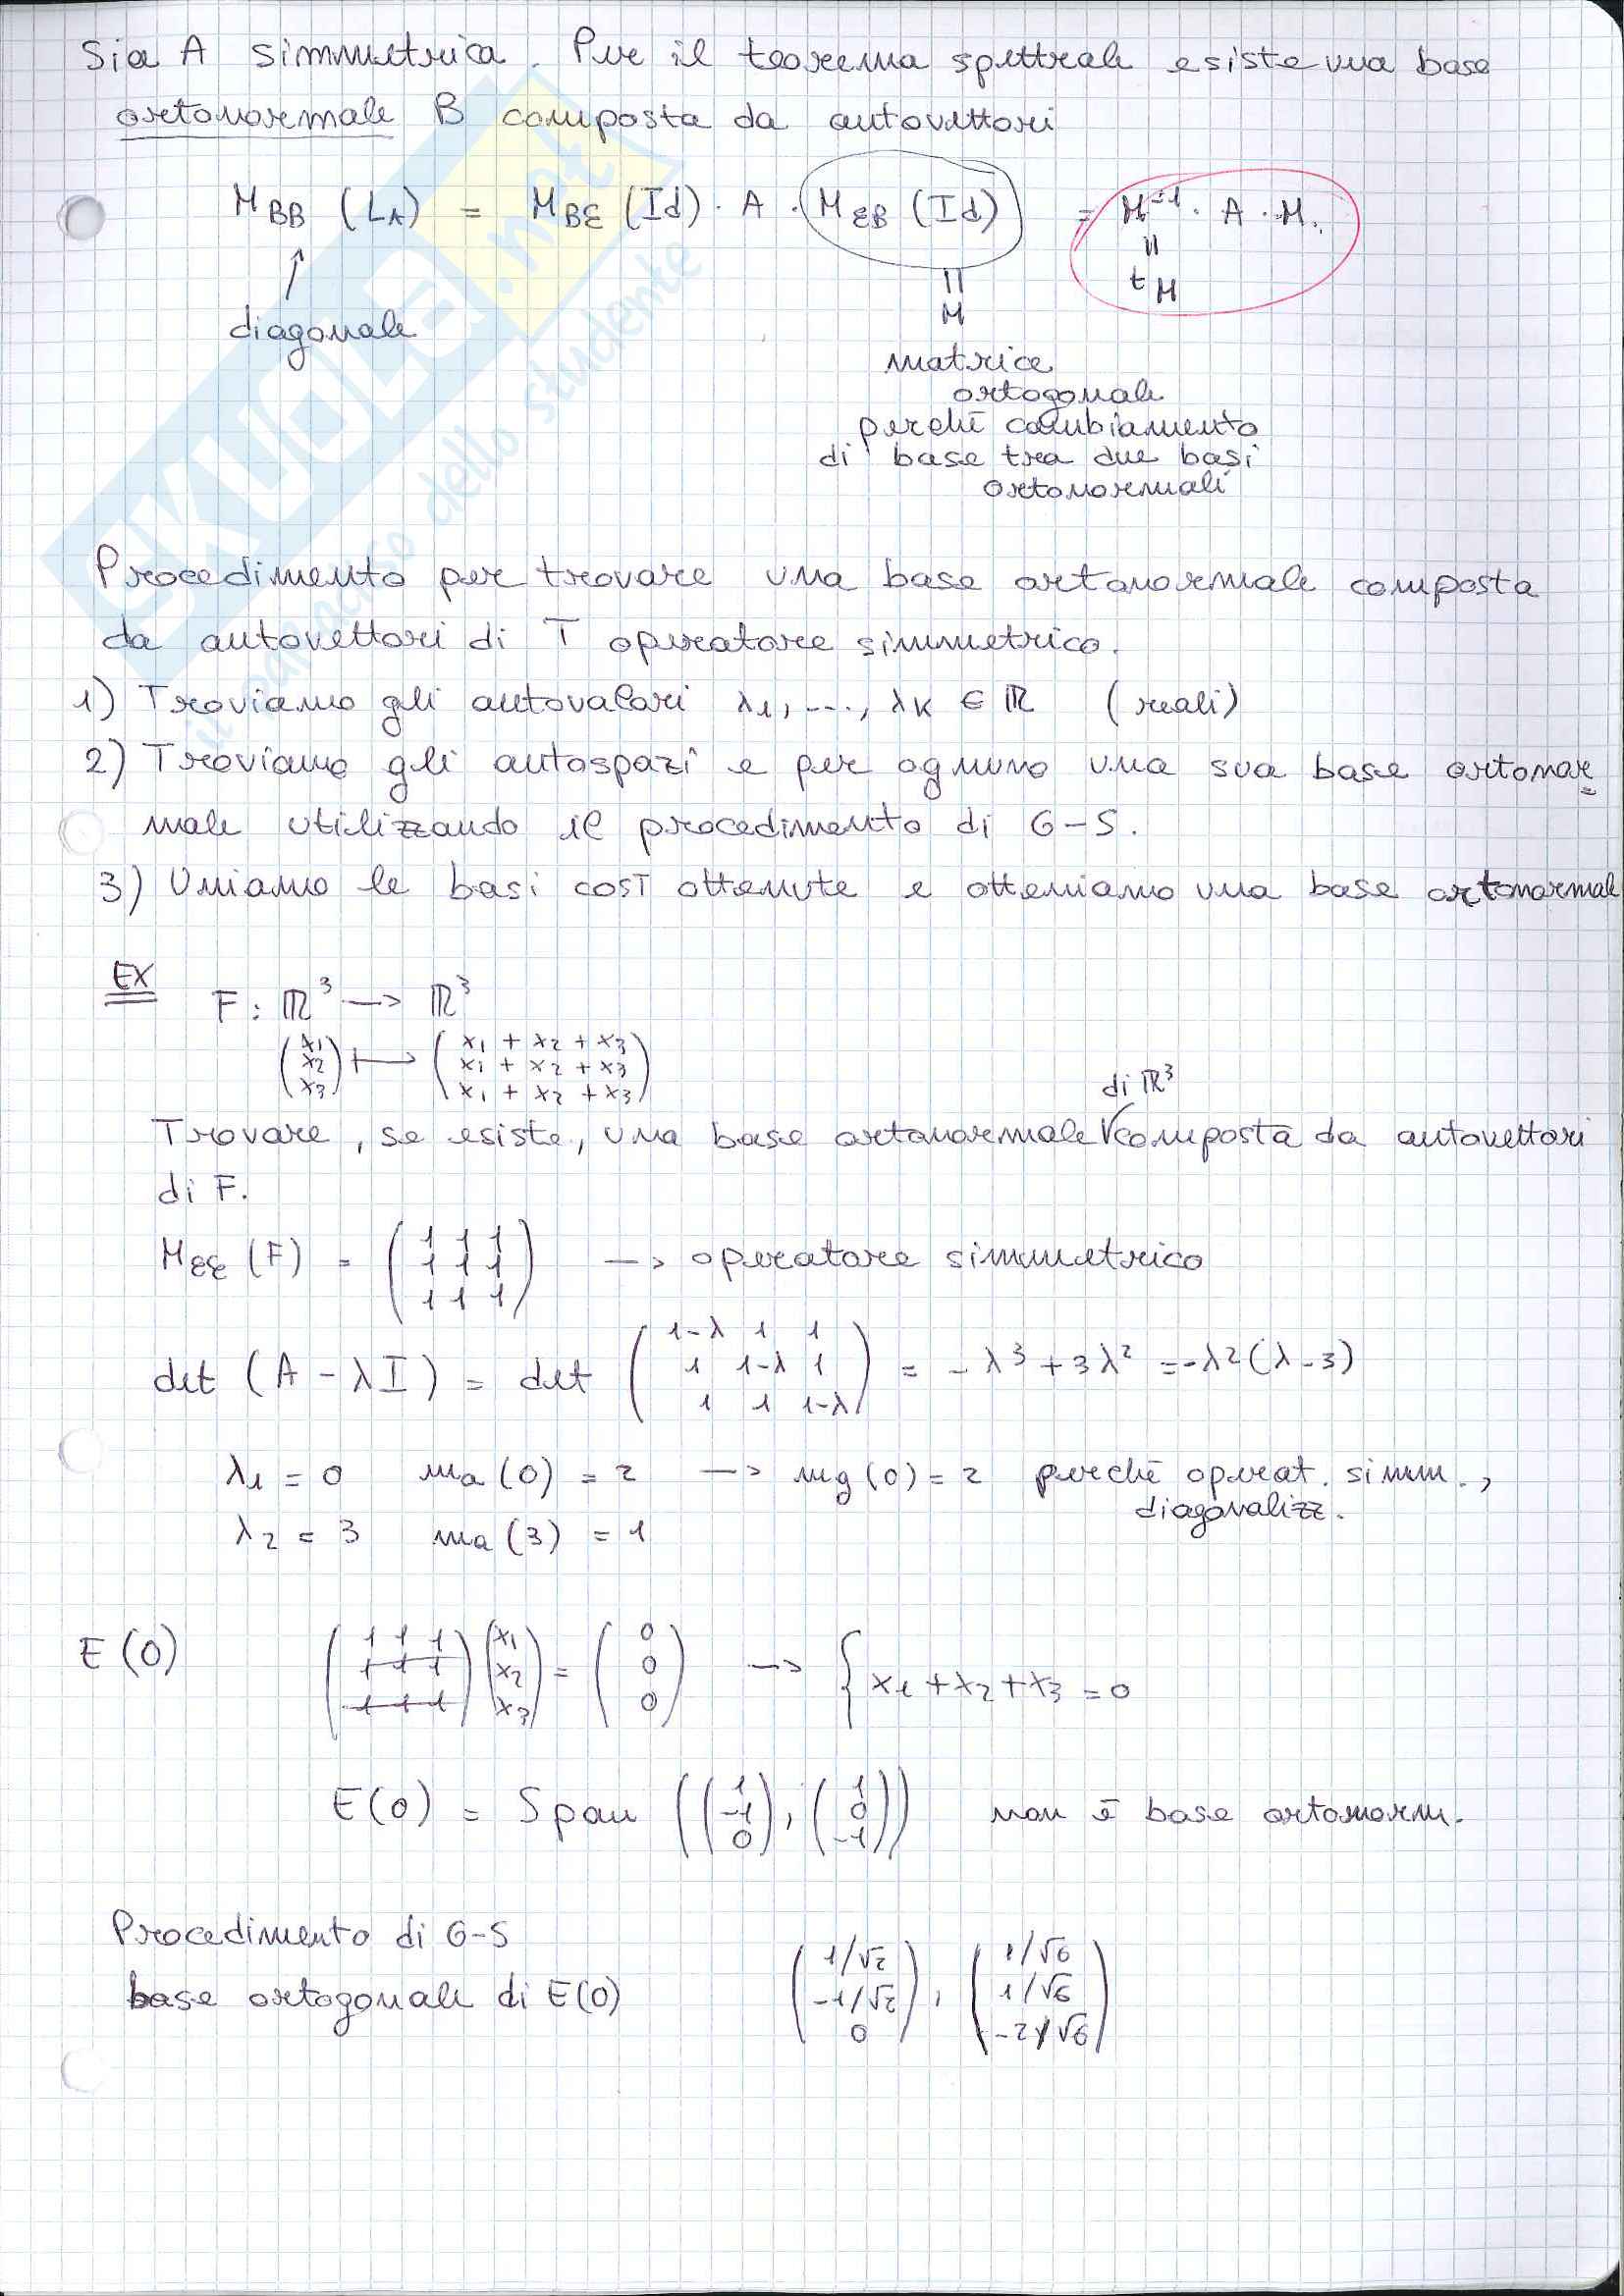 Sia A simmetrica. Per il teorema spettrale esiste una base
ortonormale B composta da autovettori
M_BB (L_A) = M_BE (Id) · A · M_EB (Id) = M⁻¹ · A · M.
diagonale
||
M
||
tM
matrice
ortogonale
perché cambiamento
di base tra due basi
ortonormali
Procedimento per trovare una base ortonormale composta
da autovettori di T operatore simmetrico.
1) Troviamo gli autovalori λ1, ..., λk ∈ ℝ (reali)
2) Troviamo gli autospazi e per ognuno una sua base ortonor=
male utilizzando il procedimento di G-S.
3) Uniamo le basi così ottenute e otteniamo una base ortonormale
EX
F: ℝ³ → ℝ³
(x1 x2 x3) ↦ (x1 + x2 + x3
x1 + x2 + x3
x1 + x2 + x3)
di ℝ³
Trovare, se esiste, una base ortonormale √composta da autovettori
di F.
M_EE (F) = (1 1 1
1 1 1
1 1 1) → operatore simmetrico
det (A - λI) = det (1-λ 1 1
1 1-λ 1
1 1 1-λ) = -λ³ + 3λ² = -λ²(λ-3)
λ1 = 0 ma(0) = 2 → mg(0) = 2 perché operat. simm.,
diagonalizz.
λ2 = 3 ma(3) = 1
E(0) (1 1 1
1 1 1
1 1 1) (x1 x2 x3) = (0 0 0) → { x1 + x2 + x3 = 0
E(0) = Span ((1 -1 0), (1 0 -1)) non è base ortonorm.
Procedimento di G-S
base ortogonale di E(0) (1/√2 -1/√2 0), (1/√6 1/√6 -2/√6)
SKUOLA.net
il paradiso dello studente